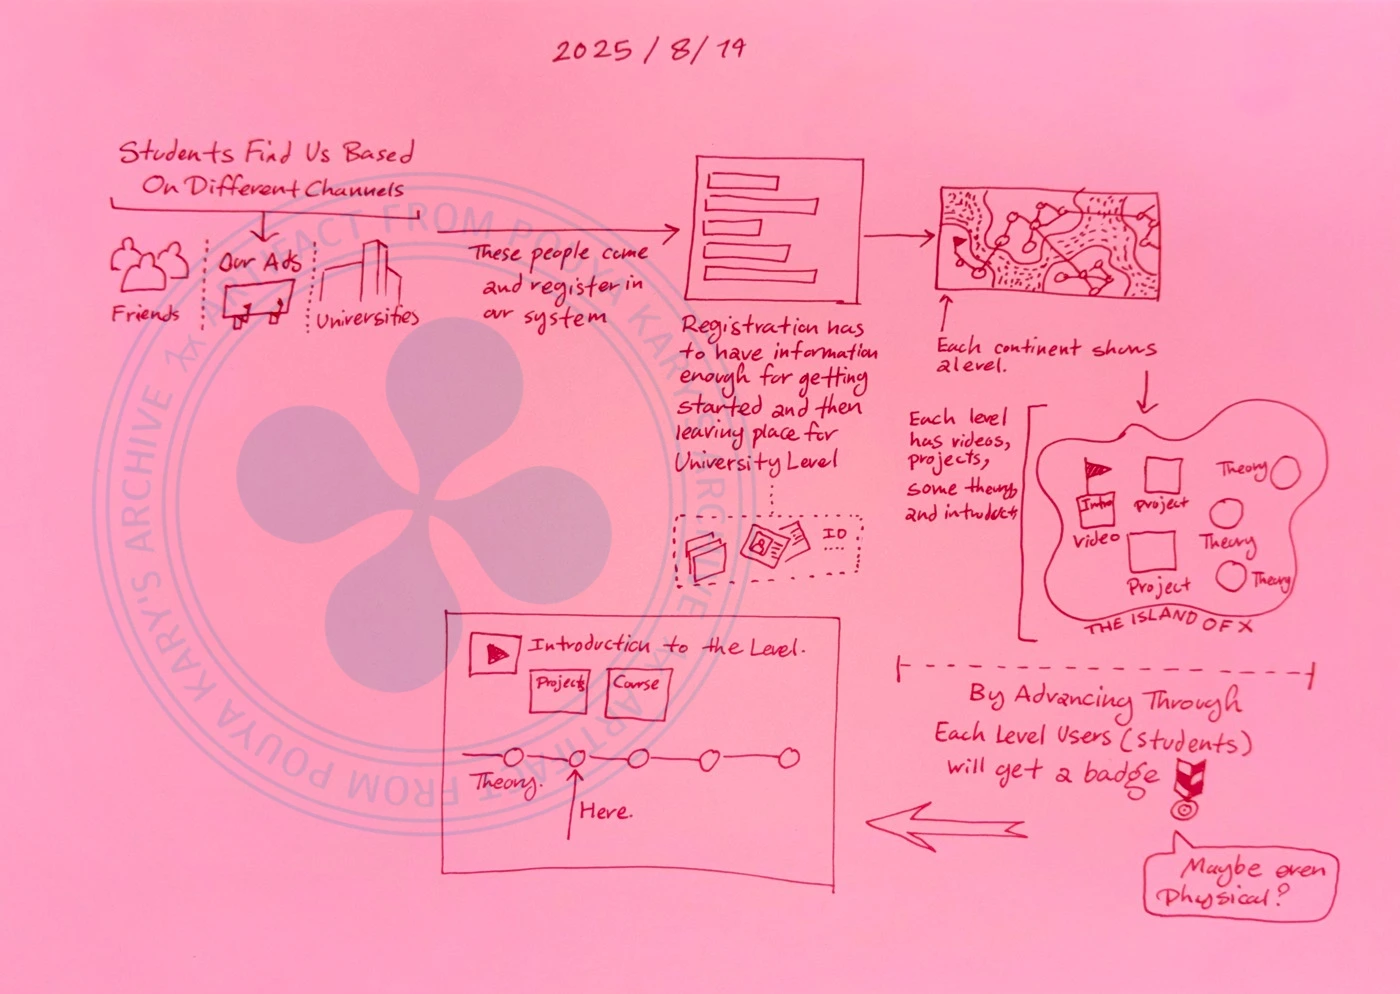 2025/8/19
Students Find Us Based
On Different Channels
Friends
Our Ads
Universities
These people come
and register in
our system
Registration has
to have information
enough for getting
started and then
leaving place for
University Level
ID
Each continent shows
a level.
Each level
has videos,
projects,
some theory
and
Intro
Video
Project
Project
Theory
Theory
Theory
THE ISLAND OF X
By Advancing Through
Each Level Users (students)
will get a badge
Maybe even
Physical?
Introduction to the Level.
Projects
Course
Theory.
Here.
ARTIFACT FROM POUYA KARY'S ARCHIVE
ARTIFACT FROM POUYA KARY'S ARCHIVE